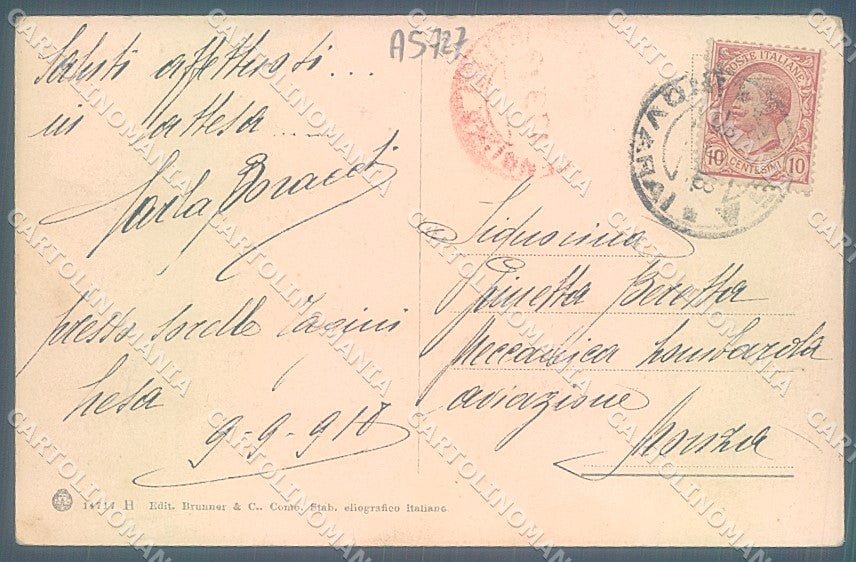 A5727
Saluti affettuosi...
in attesa....
Carla
presso sorelle
Lesa
9-9-918
14717 H Edit. Brunner & C., Como. Stab. eliografico italiano
POSTE ITALIANE
10 CENTESIMI 10
NOVARA
Signorina
Ginetta Beretta
Meccanica Lombarda
aviazione
Monza
CARTOLINOMANIA